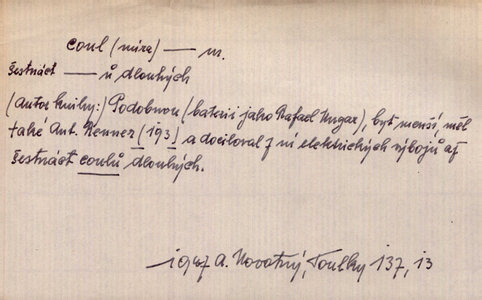 coul (míra) — m.
šestnáct — ů dlouhých
(Autor knihy:) Podobnou (baterii jako Rafael Ungar), byť menší, měl
také Ant. Renner (193_) a dociloval z ní elektrických výbojů až
šestnáct coulů dlouhých.
1947 A. Novotný, Toulky 137, 13